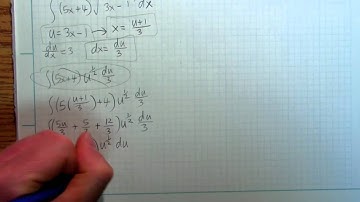 ∫(5x+4)√3x-1 dx
u=3x-1 → x=(u+1)/3
du/dx=3 dx=du/3
∫(5x+4)u^½ du/3
∫(5((u+1)/3)+4)u^½ du/3
∫(5u/3+5/3+12/3)u^½ du/3
)u^½ du